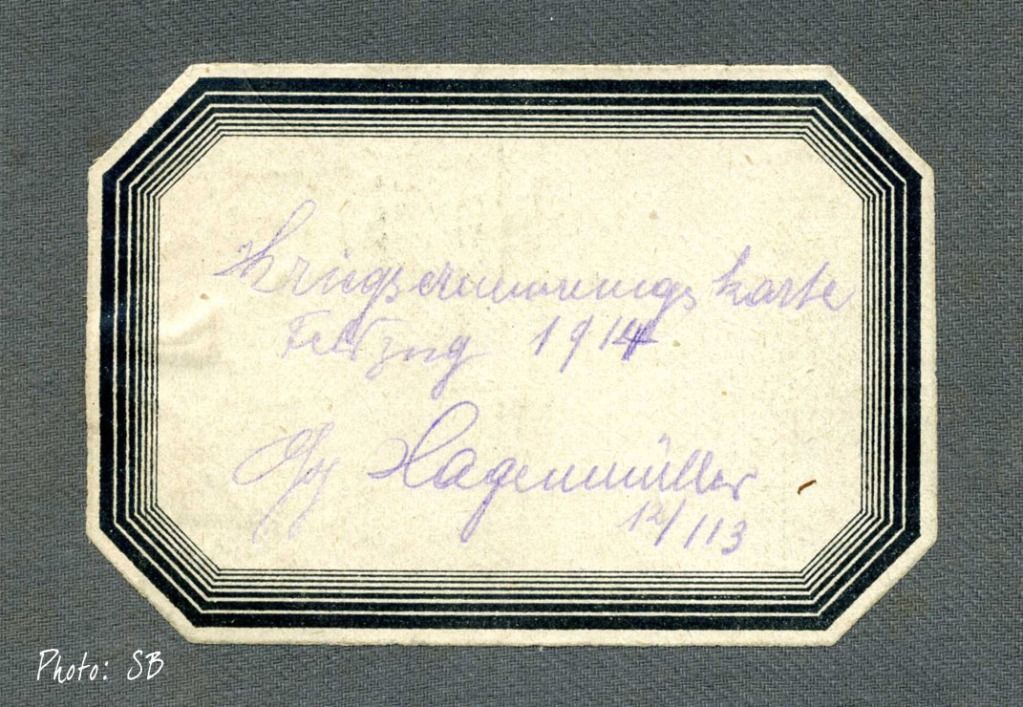 Kriegserinnerungs karte
Feldzug 1914
Gg Hagenmüller
12/113
Photo: SB